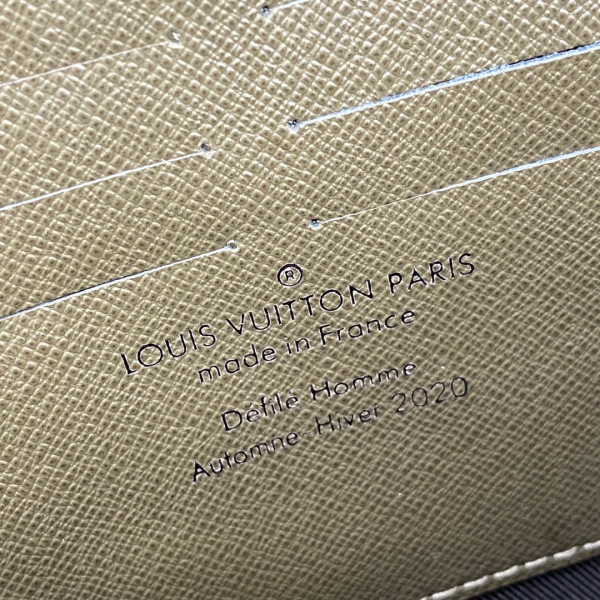 ®
LOUIS VUITTON PARIS
made in France
Défilé Homme
Automne-Hiver 2020